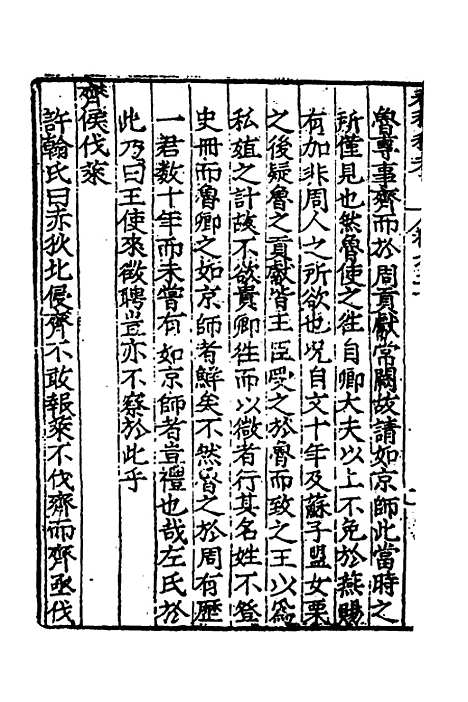 魯尊事齊而於周貢獻常闕故請如京師此當時之
所僅見也然魯使之徃自卿大夫以上不免於燕賜
有加非周人之所欲也況自文十年及蘇子盟女栗
之後疑魯之貢獻皆王臣受之於魯而致之王以為
私殖之計故不欲貴卿徃而以微者行其名姓不登
史冊而魯卿之如京師者鮮矣不然魯之於周有歷
一君数十年而未嘗有如京師者豈禮也哉左氏於
此乃曰王使來徵聘豈亦不察於此乎
齊侯伐萊
許翰氏曰赤狄北侵齊不敢報萊不伐齊而齊亟伐